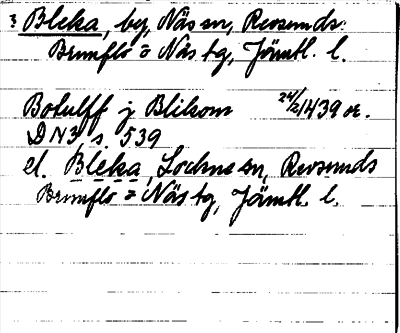 3 Bleka, by, Näs sn, Revsunds
Brunflo o Näs tg, Jämtl. l.
Botulff j Blikom 24/2 1439 or.
DN 3, s. 539
el. Bleka, Lockne sn, Revsunds
Brunflo o Näs tg, Jämtl. l.